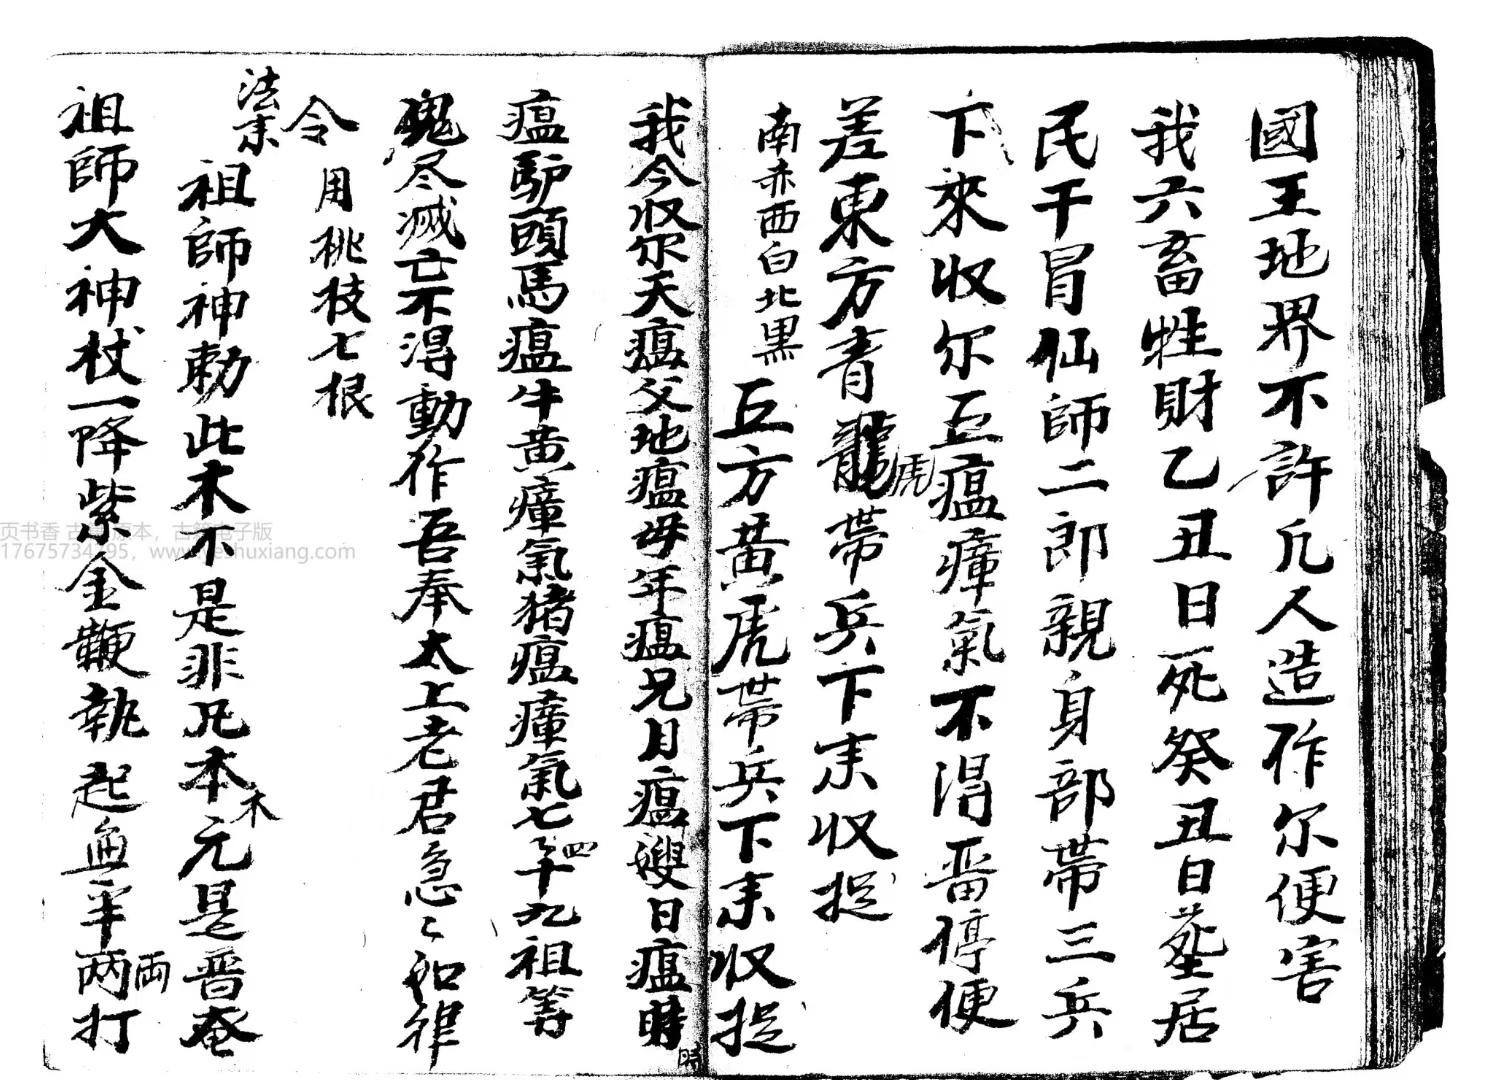 國王地界不許凡人造作尔便害
我六畜牲財乙丑日死癸丑日墓居
民干冒仙師二郎親身部帶三兵
下來収尔五瘟瘴氣不淂畱停便
差東方青龍虎帶兵下来収捉
南赤西白北黒
五方黃虎帶兵下来収捉
我今収尔天瘟父地瘟母年瘟兄月瘟嫂日瘟時
時
瘟驴頭馬瘟牛黃瘴氣猪瘟瘴氣七十四九祖等
鬼尽滅亡不淂動作吾奉太上老君急〻如律
令
用桃枝七根
法水
祖師神勅此木不是非凡本木元是普奄
祖師大神杖一降紫金鞭執起鱼半两両打
页书香 古籍原本，古籍电子版